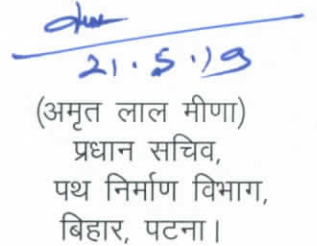 21.5.19
(अमृत लाल मीणा)
प्रधान सचिव,
पथ निर्माण विभाग,
बिहार, पटना।